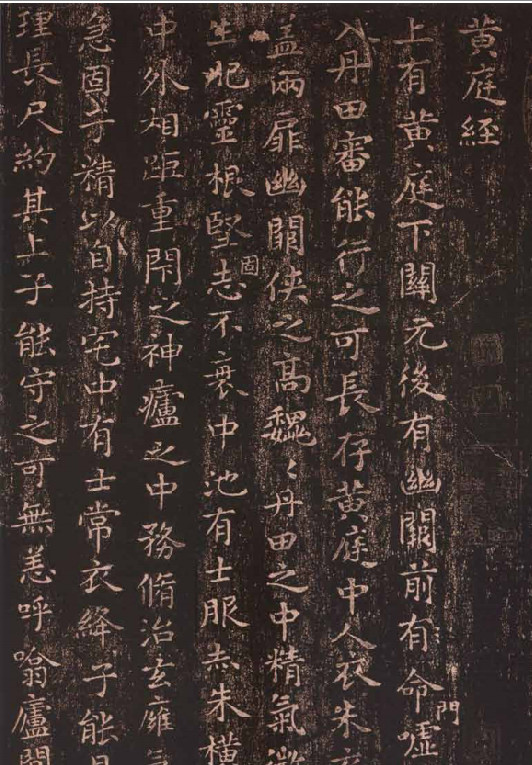 黄庭經
上有黄庭下關元後有幽闕前有命門噓
入丹田審能行之可長存黄庭中人衣朱
盖兩扉幽闕侠之高魏〻丹田之中精氣微
生肥靈根堅固志不衰中池有士服赤朱横
中外相距重閇之神廬之中務脩治玄廱
急固子精以自持宅中有士常衣絳子能見
理長尺約其上子能守之可無恙呼噏廬閒